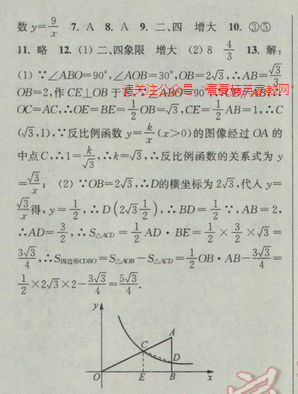 数y=9/x 7. A 8. A 9. 二、四 增大 10. ③⑤
11. 略 12. (1) 二、四象限 增大 (2) 8 4/3 13. 解:
(1) ∵∠ABO=90°,∠AOB=30°,OB=2√3,∴AB=√3/3
OB=2,作CE⊥OB于E,∵∠ABO=90°
OC=AC,∴OE=BE=1/2OB=√3,CE=1/2AB=1,∴C
(√3,1),∵反比例函数y=k/x(x>0)的图像经过OA的
中点C,∴1=k/√3,∴k=√3,∴反比例函数的关系式为y
=√3/x; (2) ∵OB=2√3,∴D的横坐标为2√3,代入y=
√3/x得,y=1/2,∴D(2√3 1/2),∴BD=1/2∵AB=2,
∴AD=3/2,∴S△ACD=1/2AD·BE=1/2×3/2×√3=
3√3/4,∴S四边形CDBO=S△AOB-S△ACD=1/2OB·AB-3√3/4=
1/2×2√3×2-3√3/4=5√3/4.
y
A
C
D
O E B x